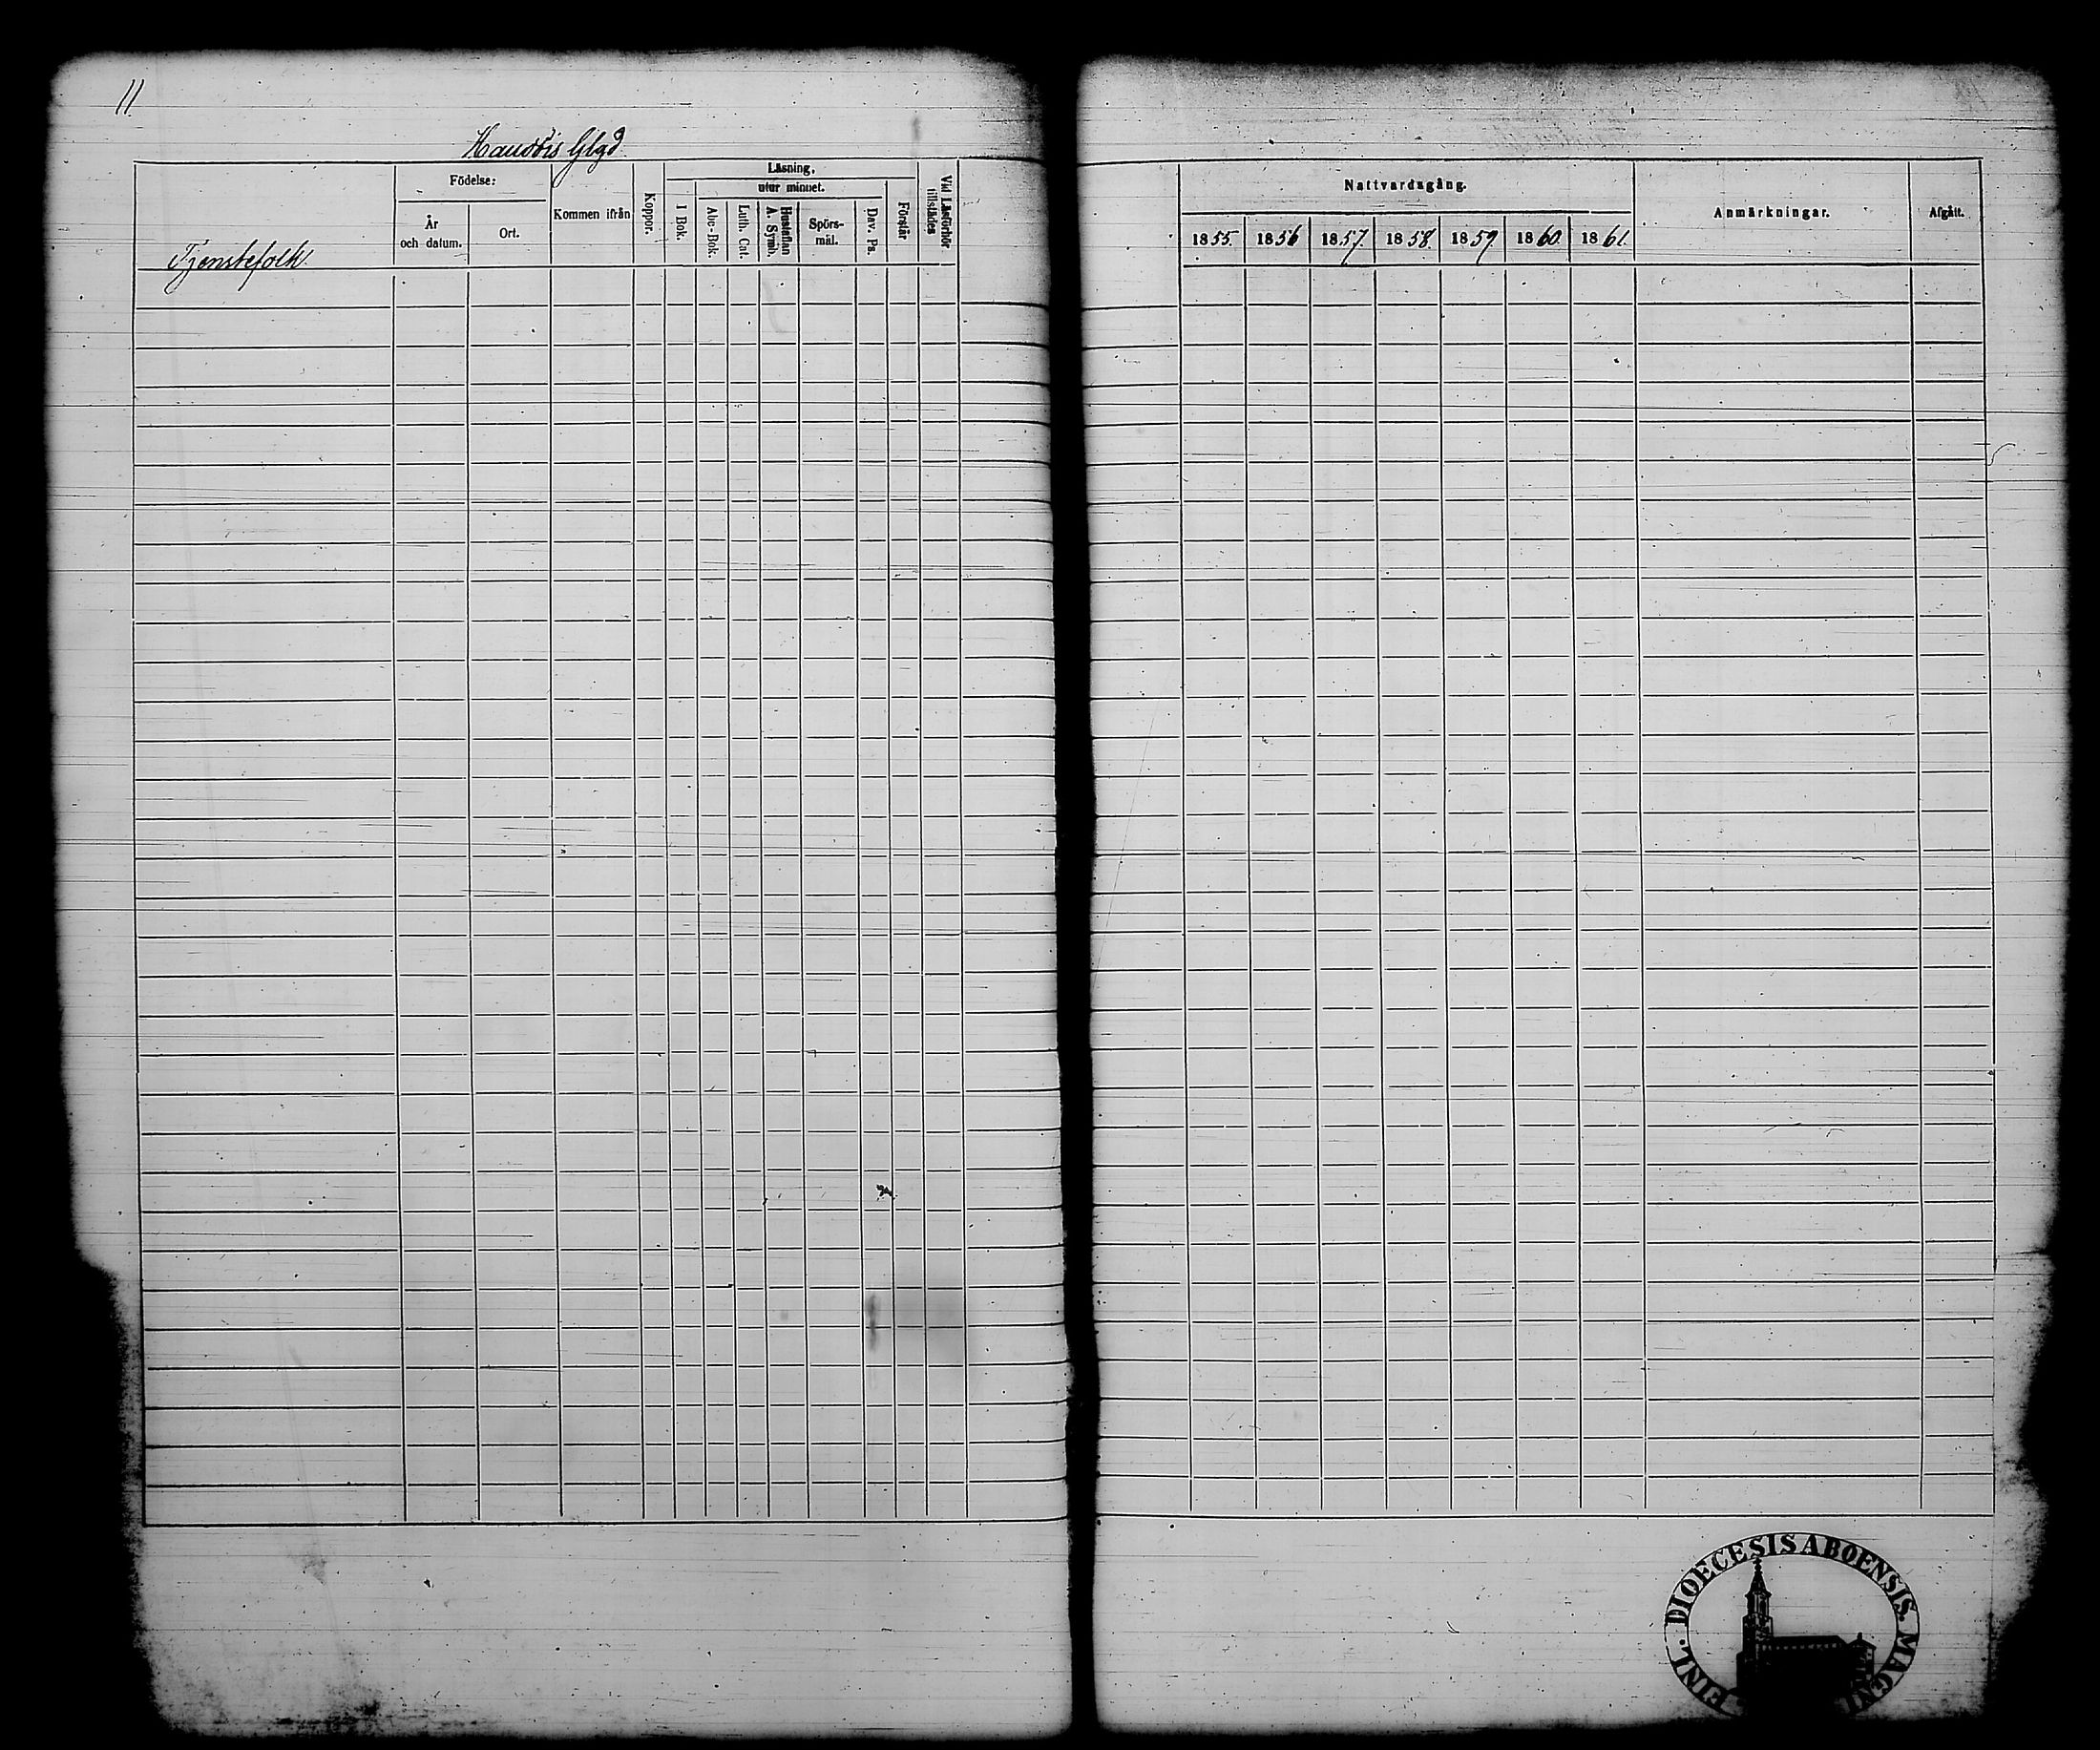 11.
Glgd
Tjenstefolk.
Födelse:
År
och datum.
Ort.
Kommen ifrån
Koppor.
Läsning,
utur minnet.
I Bok.
Abc-Bok.
Luth. Cat.
Hustaflan
A. Symb.
Spörs-
mål.
Dav. Ps.
Förstår
Vid Läsförhör
tillstädes
Nattvardsgång.
1855. 1856 1857. 1858. 1859. 1860. 1861.
Anmärkningar.
Afgått.
FINL. DIOECESIS ABOENSIS. MAGNI